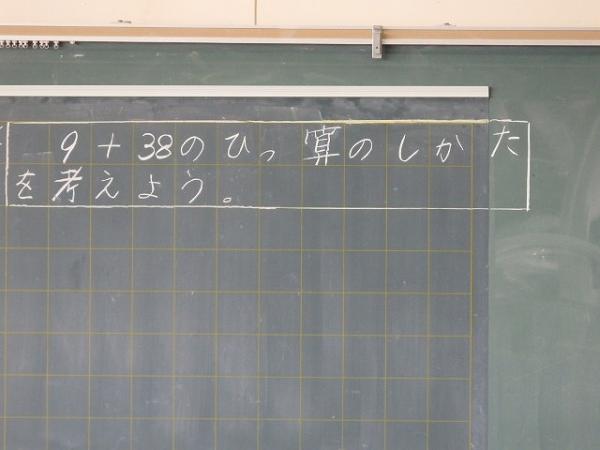 9+38のひっ算のしかた
を考えよう。